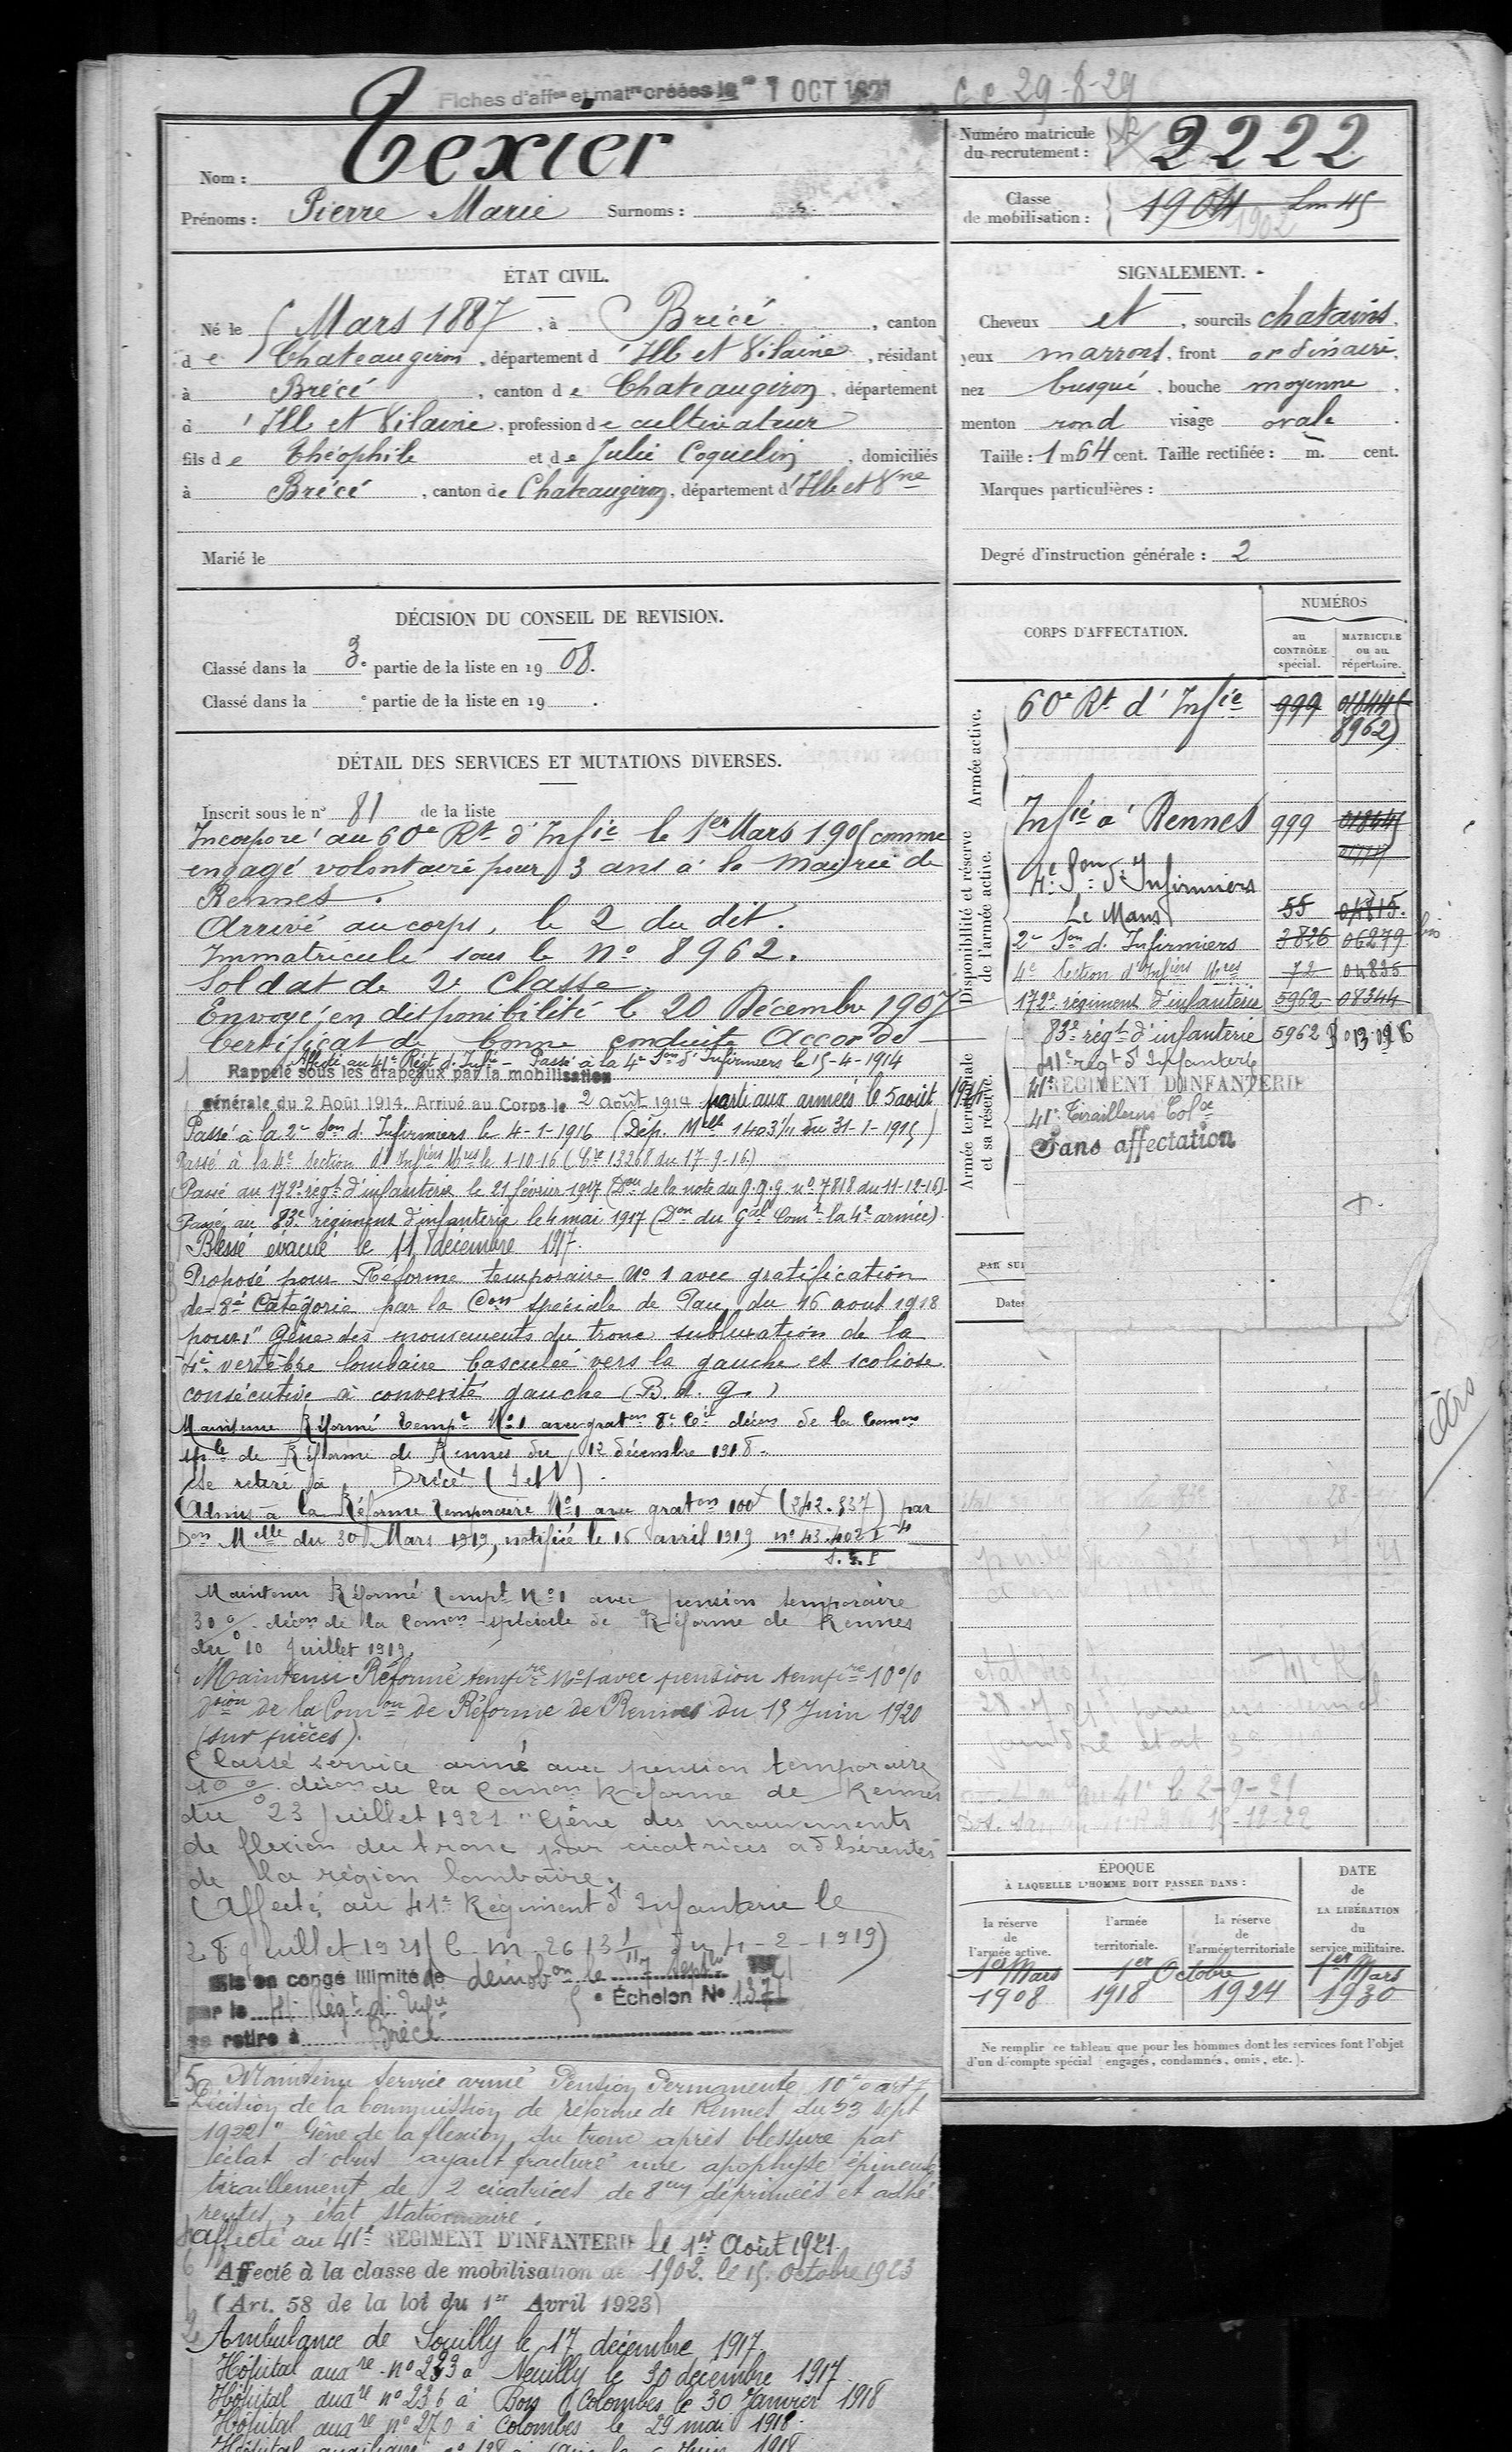 Fiches d'aff<sup>on</sup> et mat<sup>re</sup> créées le 1 OCT 1921
c c 29-8-29
Nom : Texier
Prénoms : Pierre Marie Surnoms :
Numéro matricule du recrutement : 2222
Classe de mobilisation : 1904 Lm 45
1902
ÉTAT CIVIL.
Né le 5 Mars 1887, à Brécé, canton
de Chateaugiron, département d'Ille et Vilaine, résidant
à Brécé, canton de Chateaugiron, département
d'Ille et Vilaine, profession de cultivateur
fils de Théophile et de Julie Coquelin, domiciliés
à Brécé, canton de Chateaugiron, département d'Ille et Vne
Marié le
SIGNALEMENT.
Cheveux et, sourcils chatains,
yeux marrons, front ordinaire,
nez busqué, bouche moyenne,
menton rond visage ovale.
Taille : 1 m 64 cent. Taille rectifiée : m. cent.
Marques particulières :
Degré d'instruction générale : 2
DÉCISION DU CONSEIL DE REVISION.
Classé dans la 3e partie de la liste en 1908.
Classé dans la e partie de la liste en 19 .
DÉTAIL DES SERVICES ET MUTATIONS DIVERSES.
Inscrit sous le n° 81 de la liste
Incorporé au 60e Rt d'Infie le 1er Mars 1905 comme
engagé volontaire pour 3 ans à la Mairie de
Rennes.
Arrivé au corps, le 2 du dit.
Immatriculé sous le N° 8962.
Soldat de 2e Classe
Envoyé en disponibilité le 20 Décembre 1907
Certificat de bonne conduite Accordé
Affecté au 41e Régt d'Infie Passé à la 4e Son d'Infirmiers le 15-4-1914
Rappelé sous les drapeaux par la mobilisation
générale du 2 Août 1914. Arrivé au Corps le 2 août 1914 parti aux armées le 5 août 1914
Passé à la 2e Son d. Infirmiers le 4-1-1916 (Dép. Melle 1403 1/11 du 31-1-1915)
Passé à la 4e section d'Infiers Mres le 1-10-16 (Cre 13268 du 17-9-16)
Passé au 172e régt d'infanterie le 21 février 1917 (Don de la note du G.Q.G. n° 7818 du 11-12-16)
Passé au 83e régiment d'infanterie le 4 mai 1917 (Don du Gal Comt la 4e armée)
Blessé évacué le 11 décembre 1917.
Proposé pour Réforme temporaire N° 1 avec gratification
de 8e Catégorie par la Con spéciale de Pau du 16 aout 1918
pour : "Gêne des mouvements du tronc subluxation de la
4e vertèbre lombaire basculée vers la gauche et scoliose
consécutive à convexité gauche (B. d. g.)
Maintenu Réformé Tempe N° 1 avec graton 8e Cie décon de la Comon
sple de Réforme de Rennes du 12 décembre 1918.
Se retire à Brécé (I et V)
Admis à la Réforme temporaire N° 1 avec graton 100f (242.537) par
Don Melle du 30 Mars 1919, notifié le 15 avril 1919 n° 43.402 I
Maintenu Réformé Tempe N° 1 avec pension temporaire
30 % décon de la Comon spéciale de Réforme de Rennes
du 10 Juillet 1919
Maintenu Réformé tempre N° 1 avec pension tempre 10 %
don de la Comon de Réforme de Rennes du 15 Juin 1920
(sur pièces).
Classé service armé avec pension temporaire
10 % décon de la Comon Réforme de Rennes
du 23 Juillet 1921 "Gêne des mouvements
de flexion du tronc par cicatrices adhérentes
de la région lombaire"
Affecté au 41e Régiment d'Infanterie le
28 Juillet 1921 (C. m. 2613 1/11 du 4-2-1919)
Mis en congé illimité de démobon le 7 sept.
par le 41 Regt d'Infie 5e Échelon N° 1371
se retire à Brécé
Maintenu service armé Pension Permanente 10 % art 7
Décision de la Commission de réforme de Rennes du 23 sept
1922 "Gêne de la flexion du tronc après blessure par
éclat d'obus ayant fracturé une apophyse épineuse
tiraillement de 2 cicatrices de 8cm déprimées et adhé-
rentes, état stationnaire.
affecté au 41e RÉGIMENT D'INFANTERIE le 1er Août 1921.
Affecté à la classe de mobilisation de 1902. le 15 octobre 1923
(Art. 58 de la loi du 1er Avril 1923)
Ambulance de Souilly le 17 décembre 1917.
Hôpital auxre n° 223 à Neuilly le 30 décembre 1917
Hôpital auxre n° 236 à Bois Colombes le 30 Janvier 1918
Hôpital auxre n° 270 à Colombes le 29 mai 1918.
CORPS D'AFFECTATION.
NUMÉROS
au CONTRÔLE spécial.
MATRICULE ou au répertoire.
Armée active.
60e Rt d'Infie 999 018445
8962
Disponibilité et réserve de l'armée active.
Infie à Rennes 999 01844
4e Son d'Infirmiers
Le Mans 55 04815.
2e Son d. Infirmiers 3826 06279
4e Section d'Infiers Mres 72 04835
172e régiment d'infanterie 5962 08344
Armée territoriale et sa réserve.
83e régt d'infanterie 5962
41e regt d'Infanterie
41e RÉGIMENT D'INFANTERIE
41e Tirailleurs Colx
Sans affectation
PAR SUI
Dates
Ars
au 41e le 2-9-21
15-12-22
ÉPOQUE
À LAQUELLE L'HOMME DOIT PASSER DANS :
la réserve de l'armée active.
l'armée territoriale.
la réserve de l'armée territoriale
DATE de LA LIBÉRATION du service militaire.
1er Mars 1er Octobre 1er Mars
1908 1918 1924 1930
Ne remplir ce tableau que pour les hommes dont les services font l'objet
d'un décompte spécial (engagés, condamnés, omis, etc.).